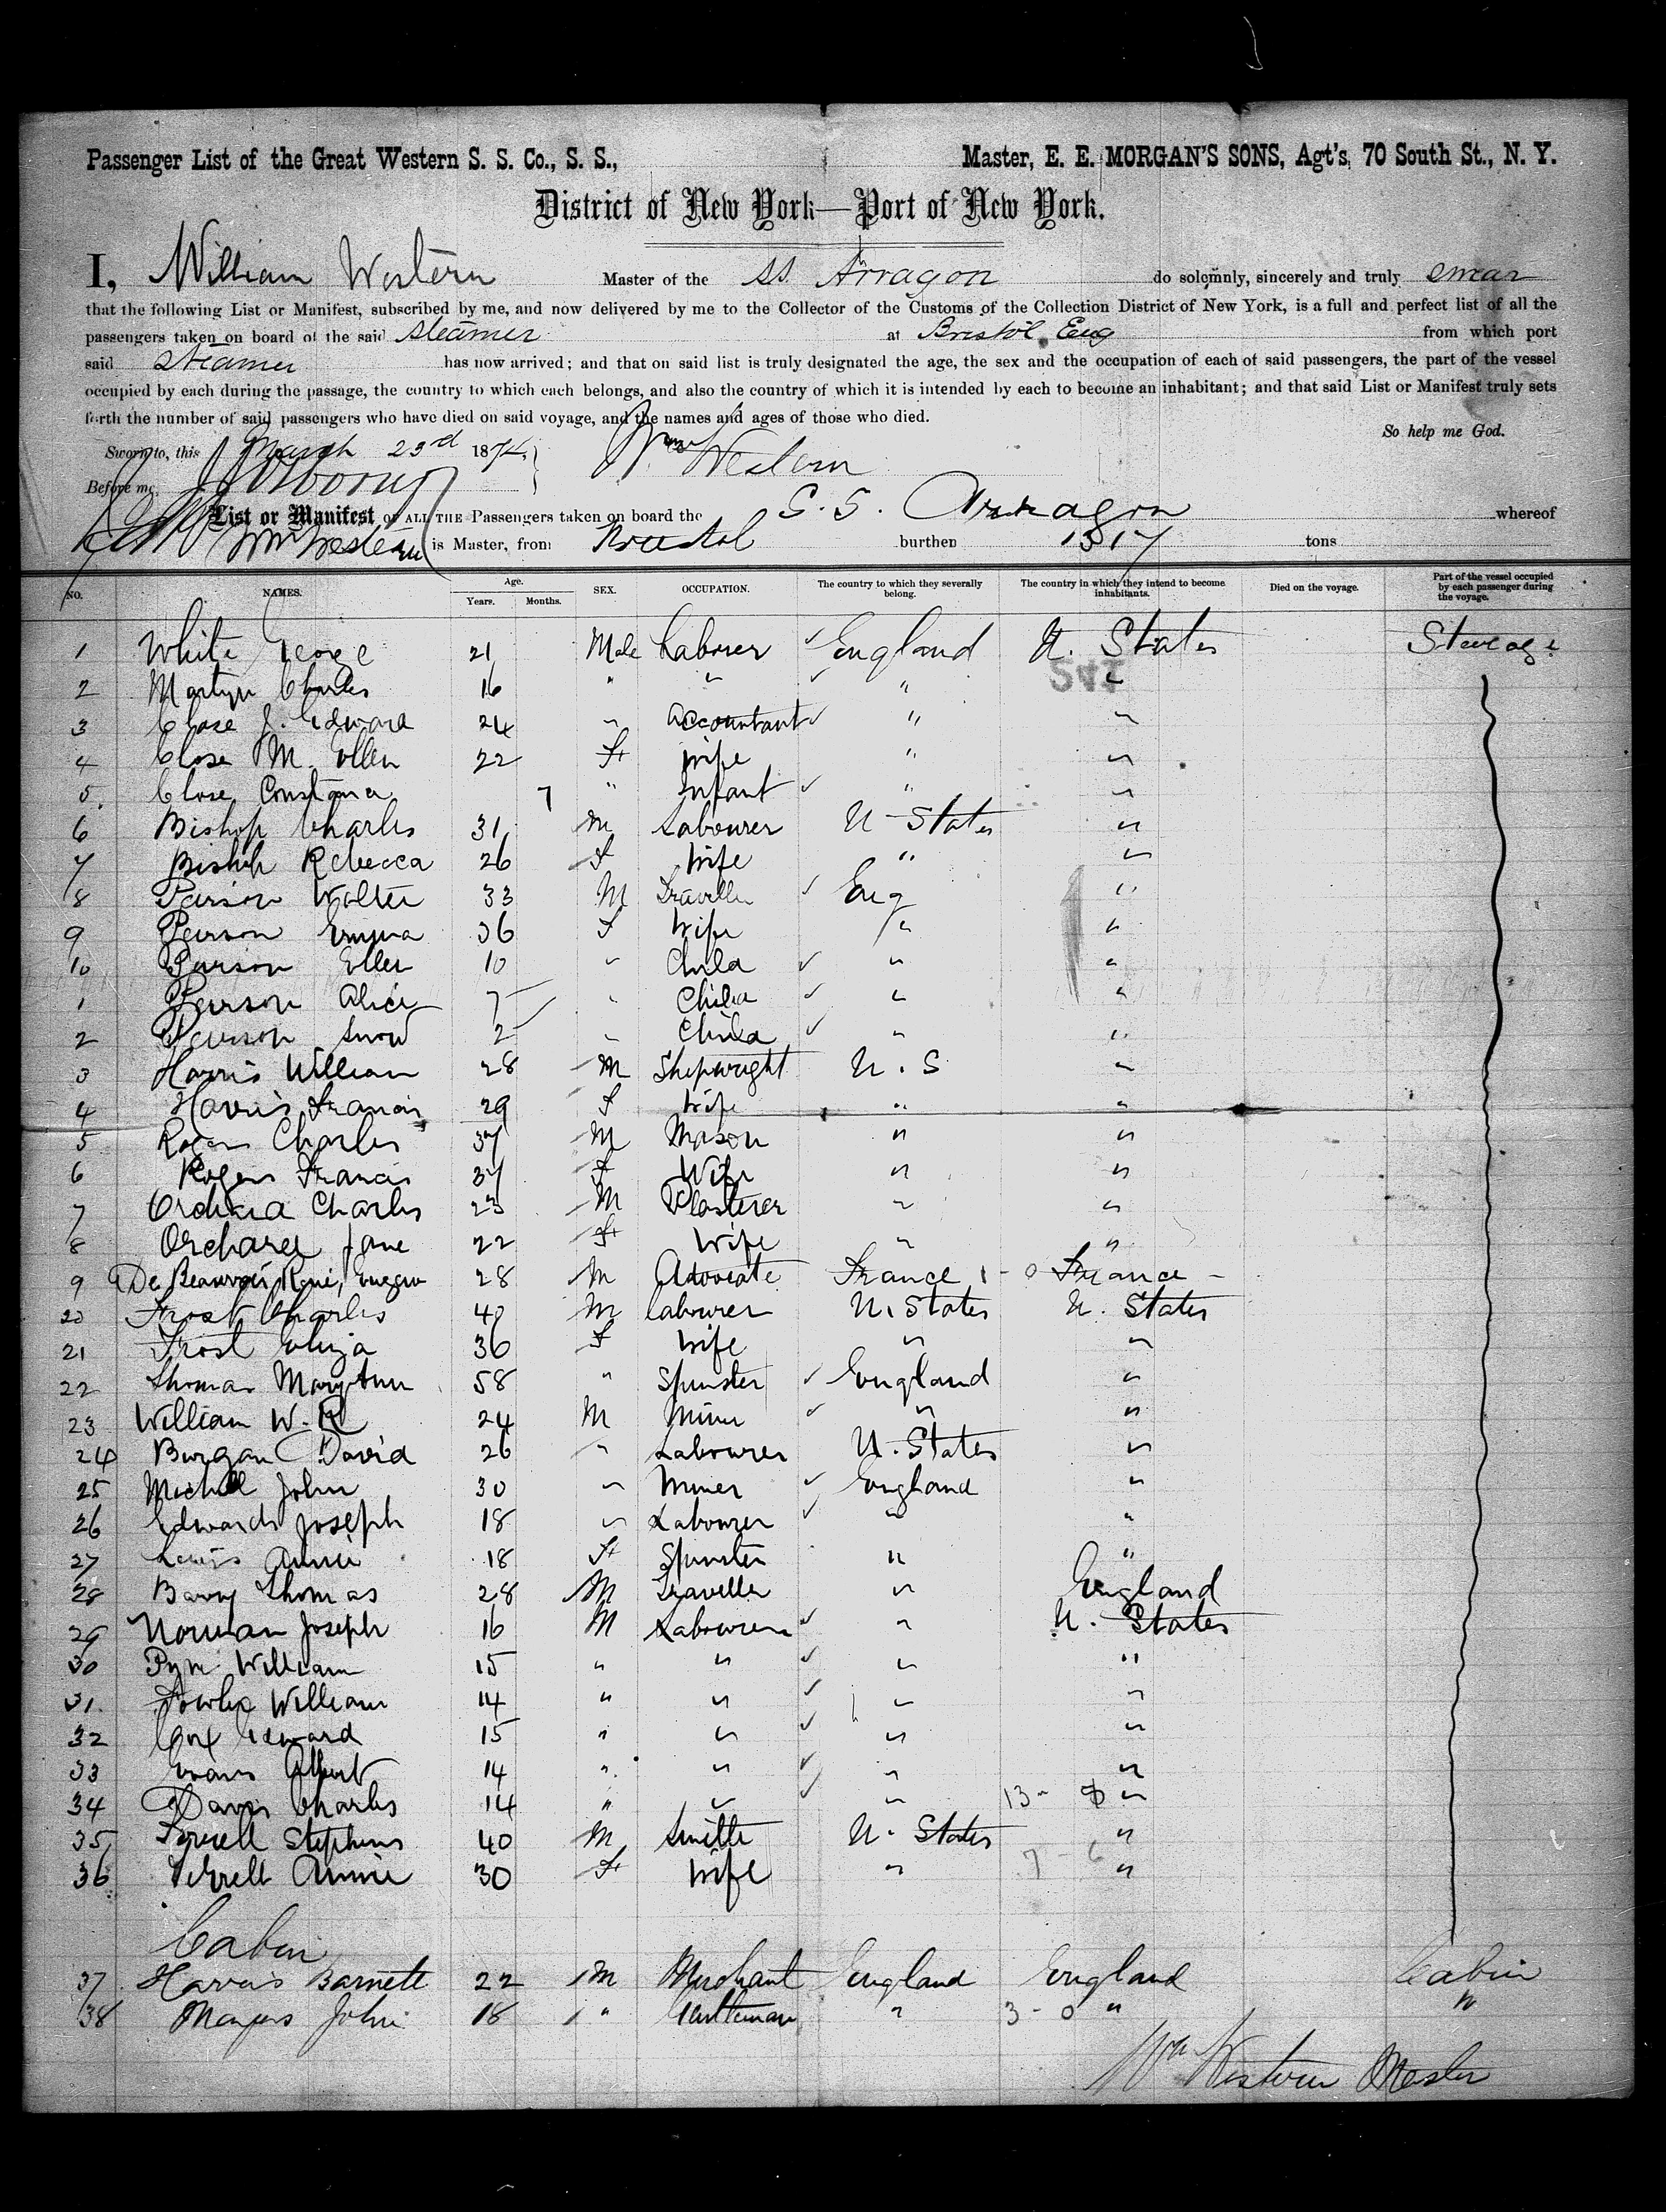 Passenger List of the Great Western S. S. Co., S. S., Master, E. E. MORGAN'S SONS, Agt's, 70 South St., N. Y.
District of New York—Port of New York.
I, William Western Master of the SS. Arragon do solemnly, sincerely and truly swear
that the following List or Manifest, subscribed by me, and now delivered by me to the Collector of the Customs of the Collection District of New York, is a full and perfect list of all the
passengers taken on board of the said steamer at Bristol Eng from which port
said steamer has now arrived; and that on said list is truly designated the age, the sex and the occupation of each of said passengers, the part of the vessel
occupied by each during the passage, the country to which each belongs, and also the country of which it is intended by each to become an inhabitant; and that said List or Manifest truly sets
forth the number of said passengers who have died on said voyage, and the names and ages of those who died.
So help me God.
Sworn to, this March 23rd 1874, Wm Western
Before me,
List or Manifest OF ALL THE Passengers taken on board the S. S. Arragon whereof
Wm Western is Master, from Bristol burthen 1317 tons
NO. NAMES. Age. Years. Months. SEX. OCCUPATION. The country to which they severally belong. The country in which they intend to become inhabitants. Died on the voyage. Part of the vessel occupied by each passenger during the voyage.
1 White George 21 Male Labourer England U. States Steerage
2 Martyn Charles 16 " " " "
3 Close J. Edward 24 " Accountant " "
4 Close M. Ellen 22 F Wife " "
5 Close 7 " Infant " "
6 Bishop Charles 31 M Labourer U States "
7 Bishop Rebecca 26 F Wife " "
8 Pearson Walter 33 M Traveller Eng "
9 Pearson Emma 36 F Wife " "
10 Pearson Ellen 10 " Child " "
1 Pearson Alice 7 " Child " "
2 Pearson Snow 2 " Child " "
3 Harris William 28 M Shipwright U. S "
4 Harris Francis 29 F Wife " "
5 Rogers Charles 37 M Mason " "
6 Rogers Francis 37 F Wife " "
7 Orchard Charles 23 M Plasterer " "
8 Orchard Jane 22 F Wife " "
9 De Beauvais René, 28 M Advocate France 1 - 0 France -
20 Frost Charles 40 M labourer U. States U. States
21 Frost Eliza 36 F Wife " "
22 Thomas Mary Ann 58 " Spinster England "
23 William W. R 24 M Miner " "
24 Burgan David 26 " Labourer U. States "
25 Michell John 30 " Miner England "
26 Edwards Joseph 18 " Labourer " "
27 Lewis Annie 18 F Spinster " "
28 Barry Thomas 28 M Traveller " England
29 Norman Joseph 16 M Labourer " U. States
30 Pym William 15 " " " "
31. William 14 " " " "
32 Cox Edward 15 " " " "
33 Evans Albert 14 " " " "
34 Davis Charles 14 " " " 13 - "
35 Stephens 40 M Smith U. States "
36 Terrell Annie 30 F Wife " 7 - 6 "
Cabin
37 Harris Barnett 22 M Merchant England England Cabin
38 John 18 " Gentleman " 3 - 0 " "
Wm Western Master